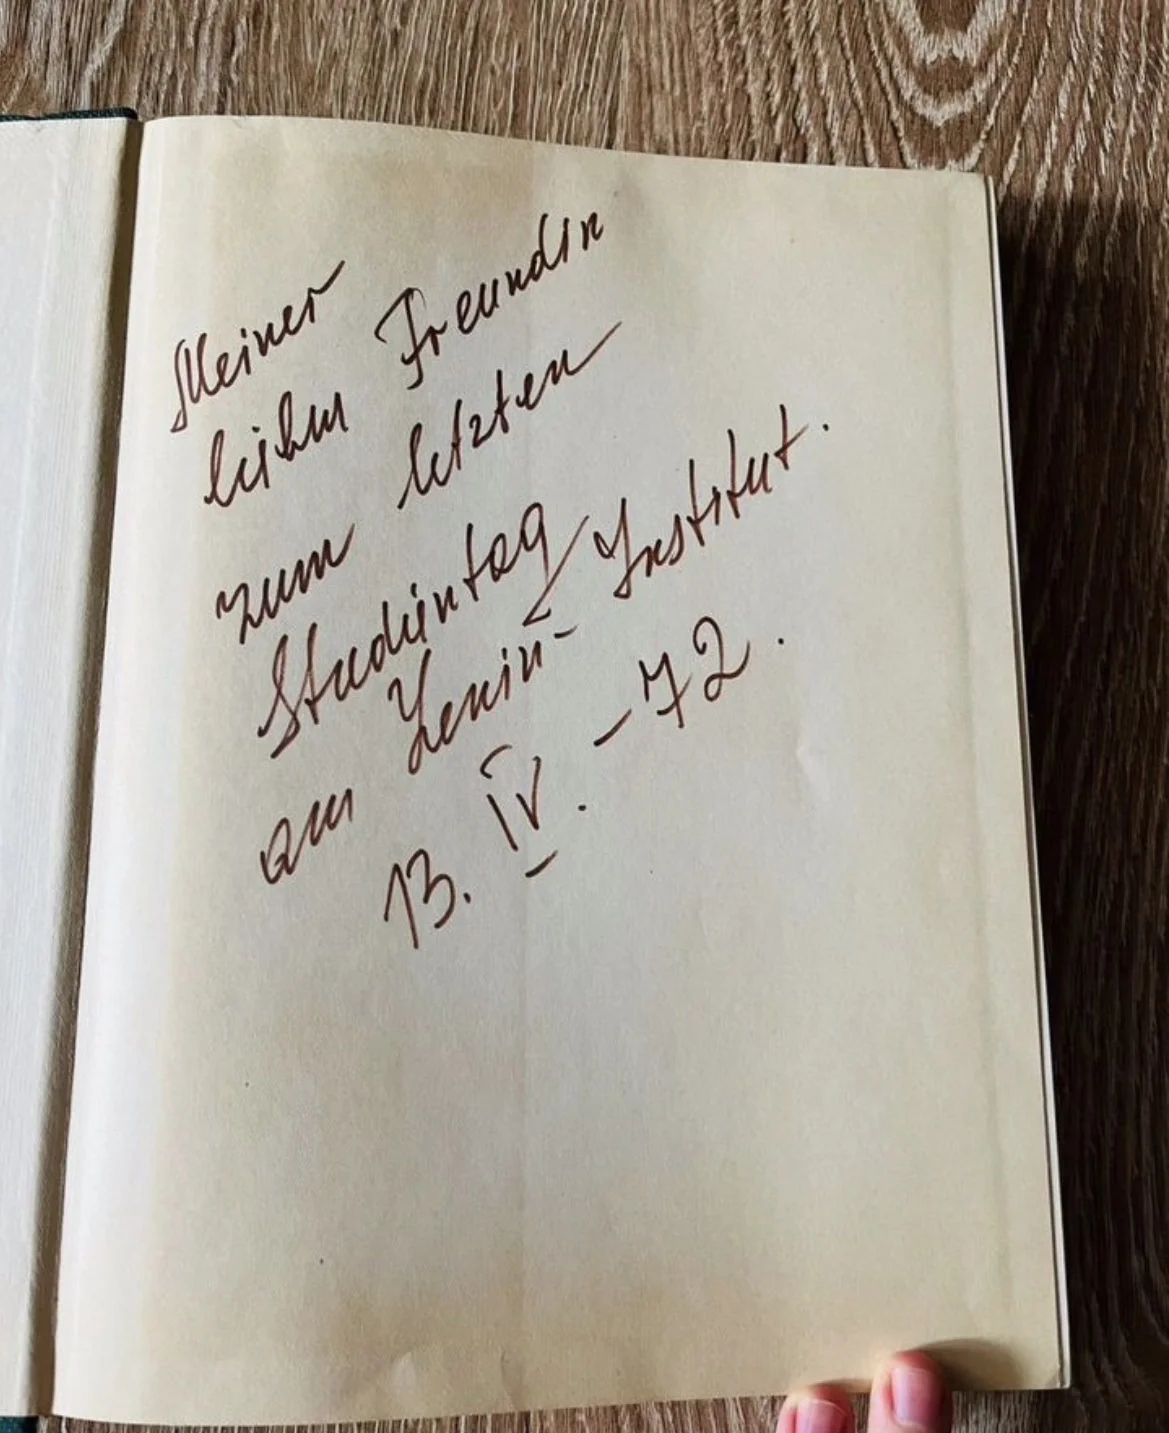 Meiner
lieben Freundin
zum letzten
Studientag
am Lenin-Institut.
13. IV. -72.